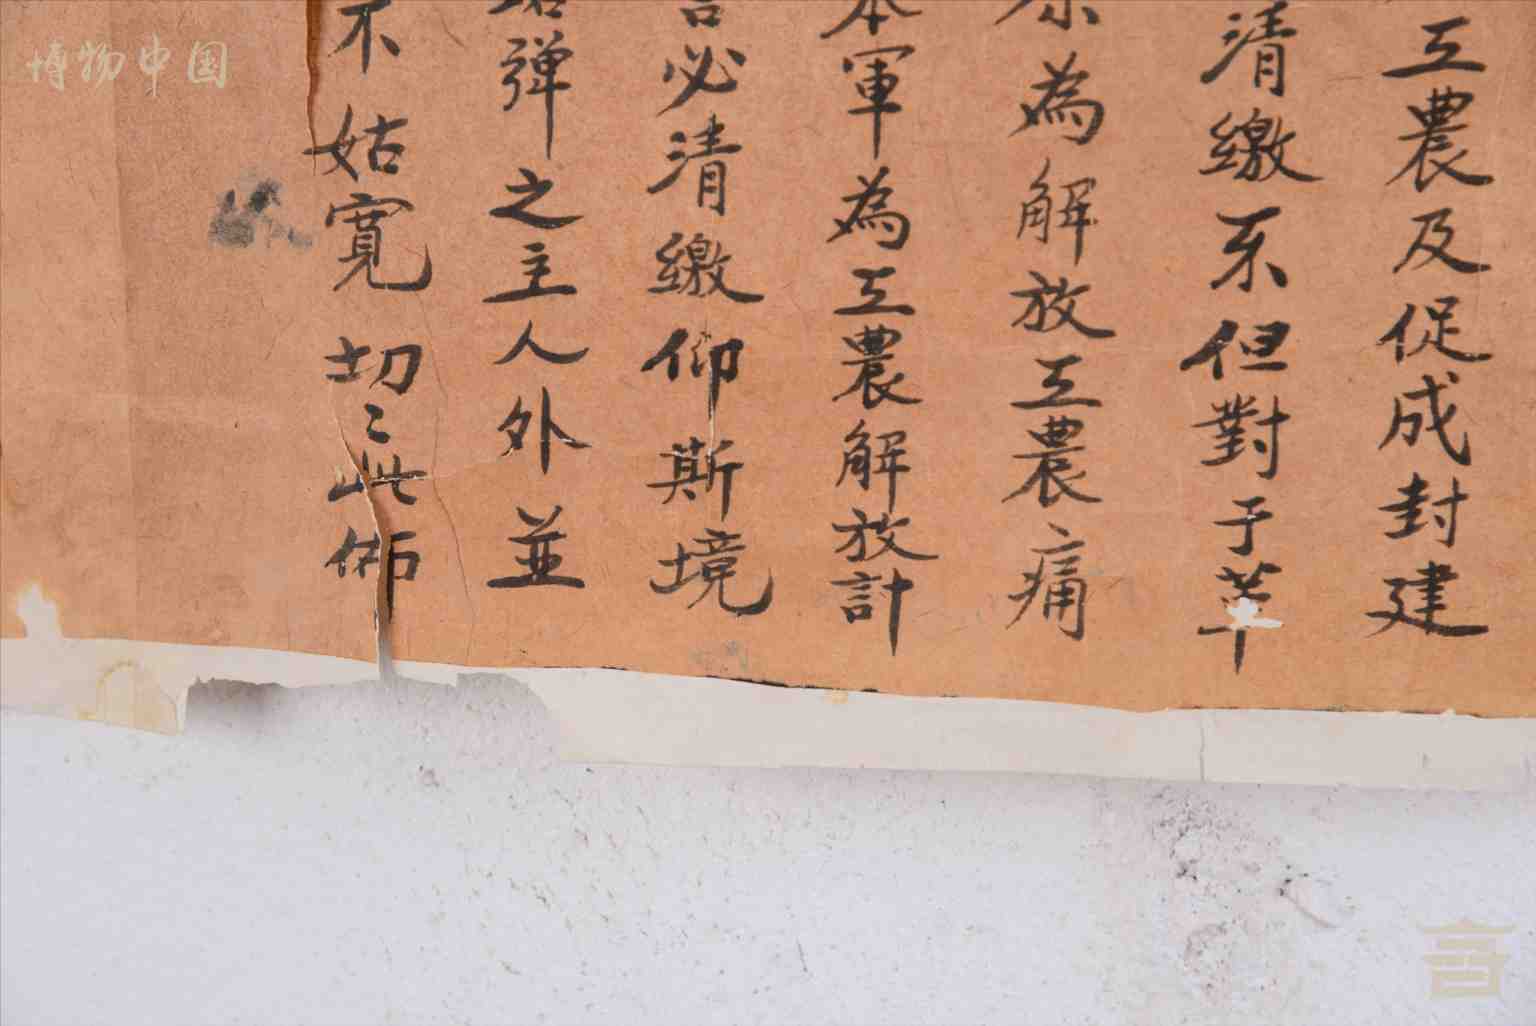 工農及促成封建
清繳系但對于革
為解放工農痛
本軍為工農解放計
必清繳仰斯境
彈之主人外並
不姑寬切〻此佈
博物中国